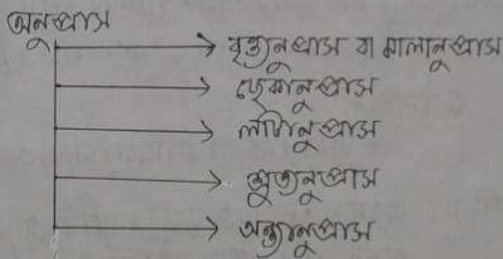 অনুপ্রাস
বৃত্ত্যনুপ্রাস বা মালানুপ্রাস
ছেকানুপ্রাস
লাটানুপ্রাস
শ্রুত্যনুপ্রাস
অন্ত্যানুপ্রাস